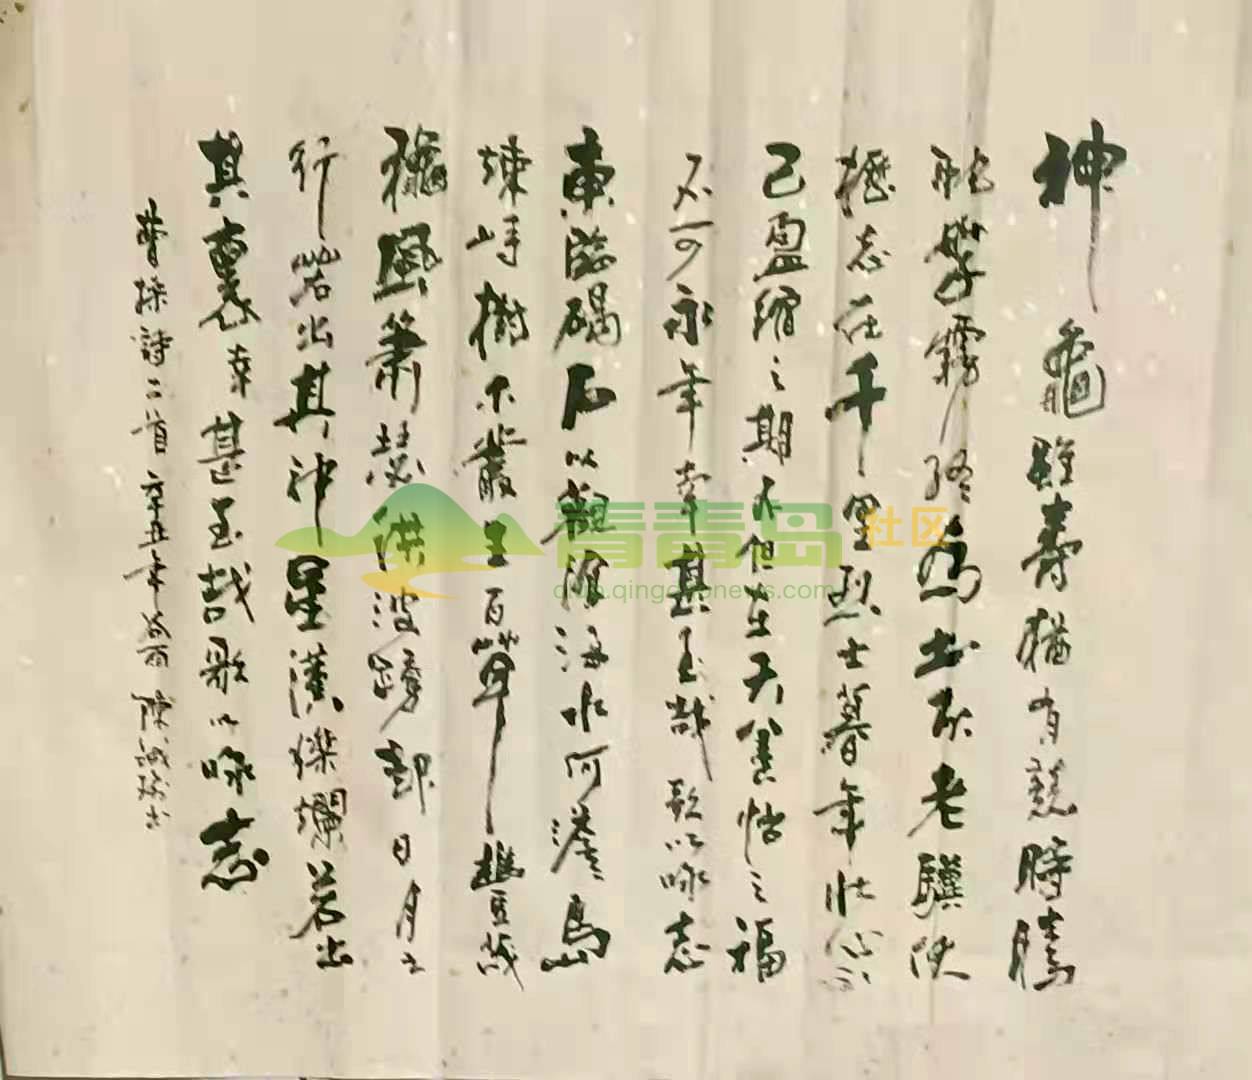 神龜雖壽猶有竟時騰
蛇霧終為土灰老驥伏
櫪志在千里烈士暮年壯心不
已盈縮之期不但在天養怡之福
可永年幸甚至哉歌以咏志
東臨碣石以觀滄海水何澹島
竦峙樹木叢生百草豐茂
龝風蕭瑟洪波踴起日月之
行若出其中星漢爛若出
其裏幸甚至哉歌以咏志
曹操詩二首辛丑年陳誠
青青岛社区
club.qingdaonews.com